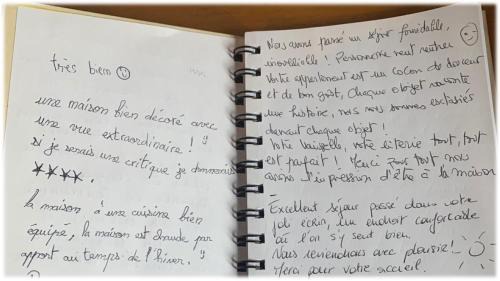 très bien ☺
une maison bien décoré avec
une vue extraordinaire !
si je serais une critique je donnerais
★★★★.
la maison à une cuisine bien
équipée, la maison est chaude par
apport au temps de l'hiver.
Nous avons passé un séjour formidable,
inoubliable ! Personne ne veut rentrer
Votre appartement est un cocon de douceur
et de bon goût, chaque objet raconte
une histoire, nous nous sommes extasiés
devant chaque objet !
Votre vaisselle, votre literie tout, tout
est parfait ! Merci pour tout nous
avons l'impression d'être à la maison
Excellent séjour passé dans votre
joli écrin, un endroit confortable
où l'on s'y sent bien.
Nous reviendrons avec plaisir !
Merci pour votre accueil.